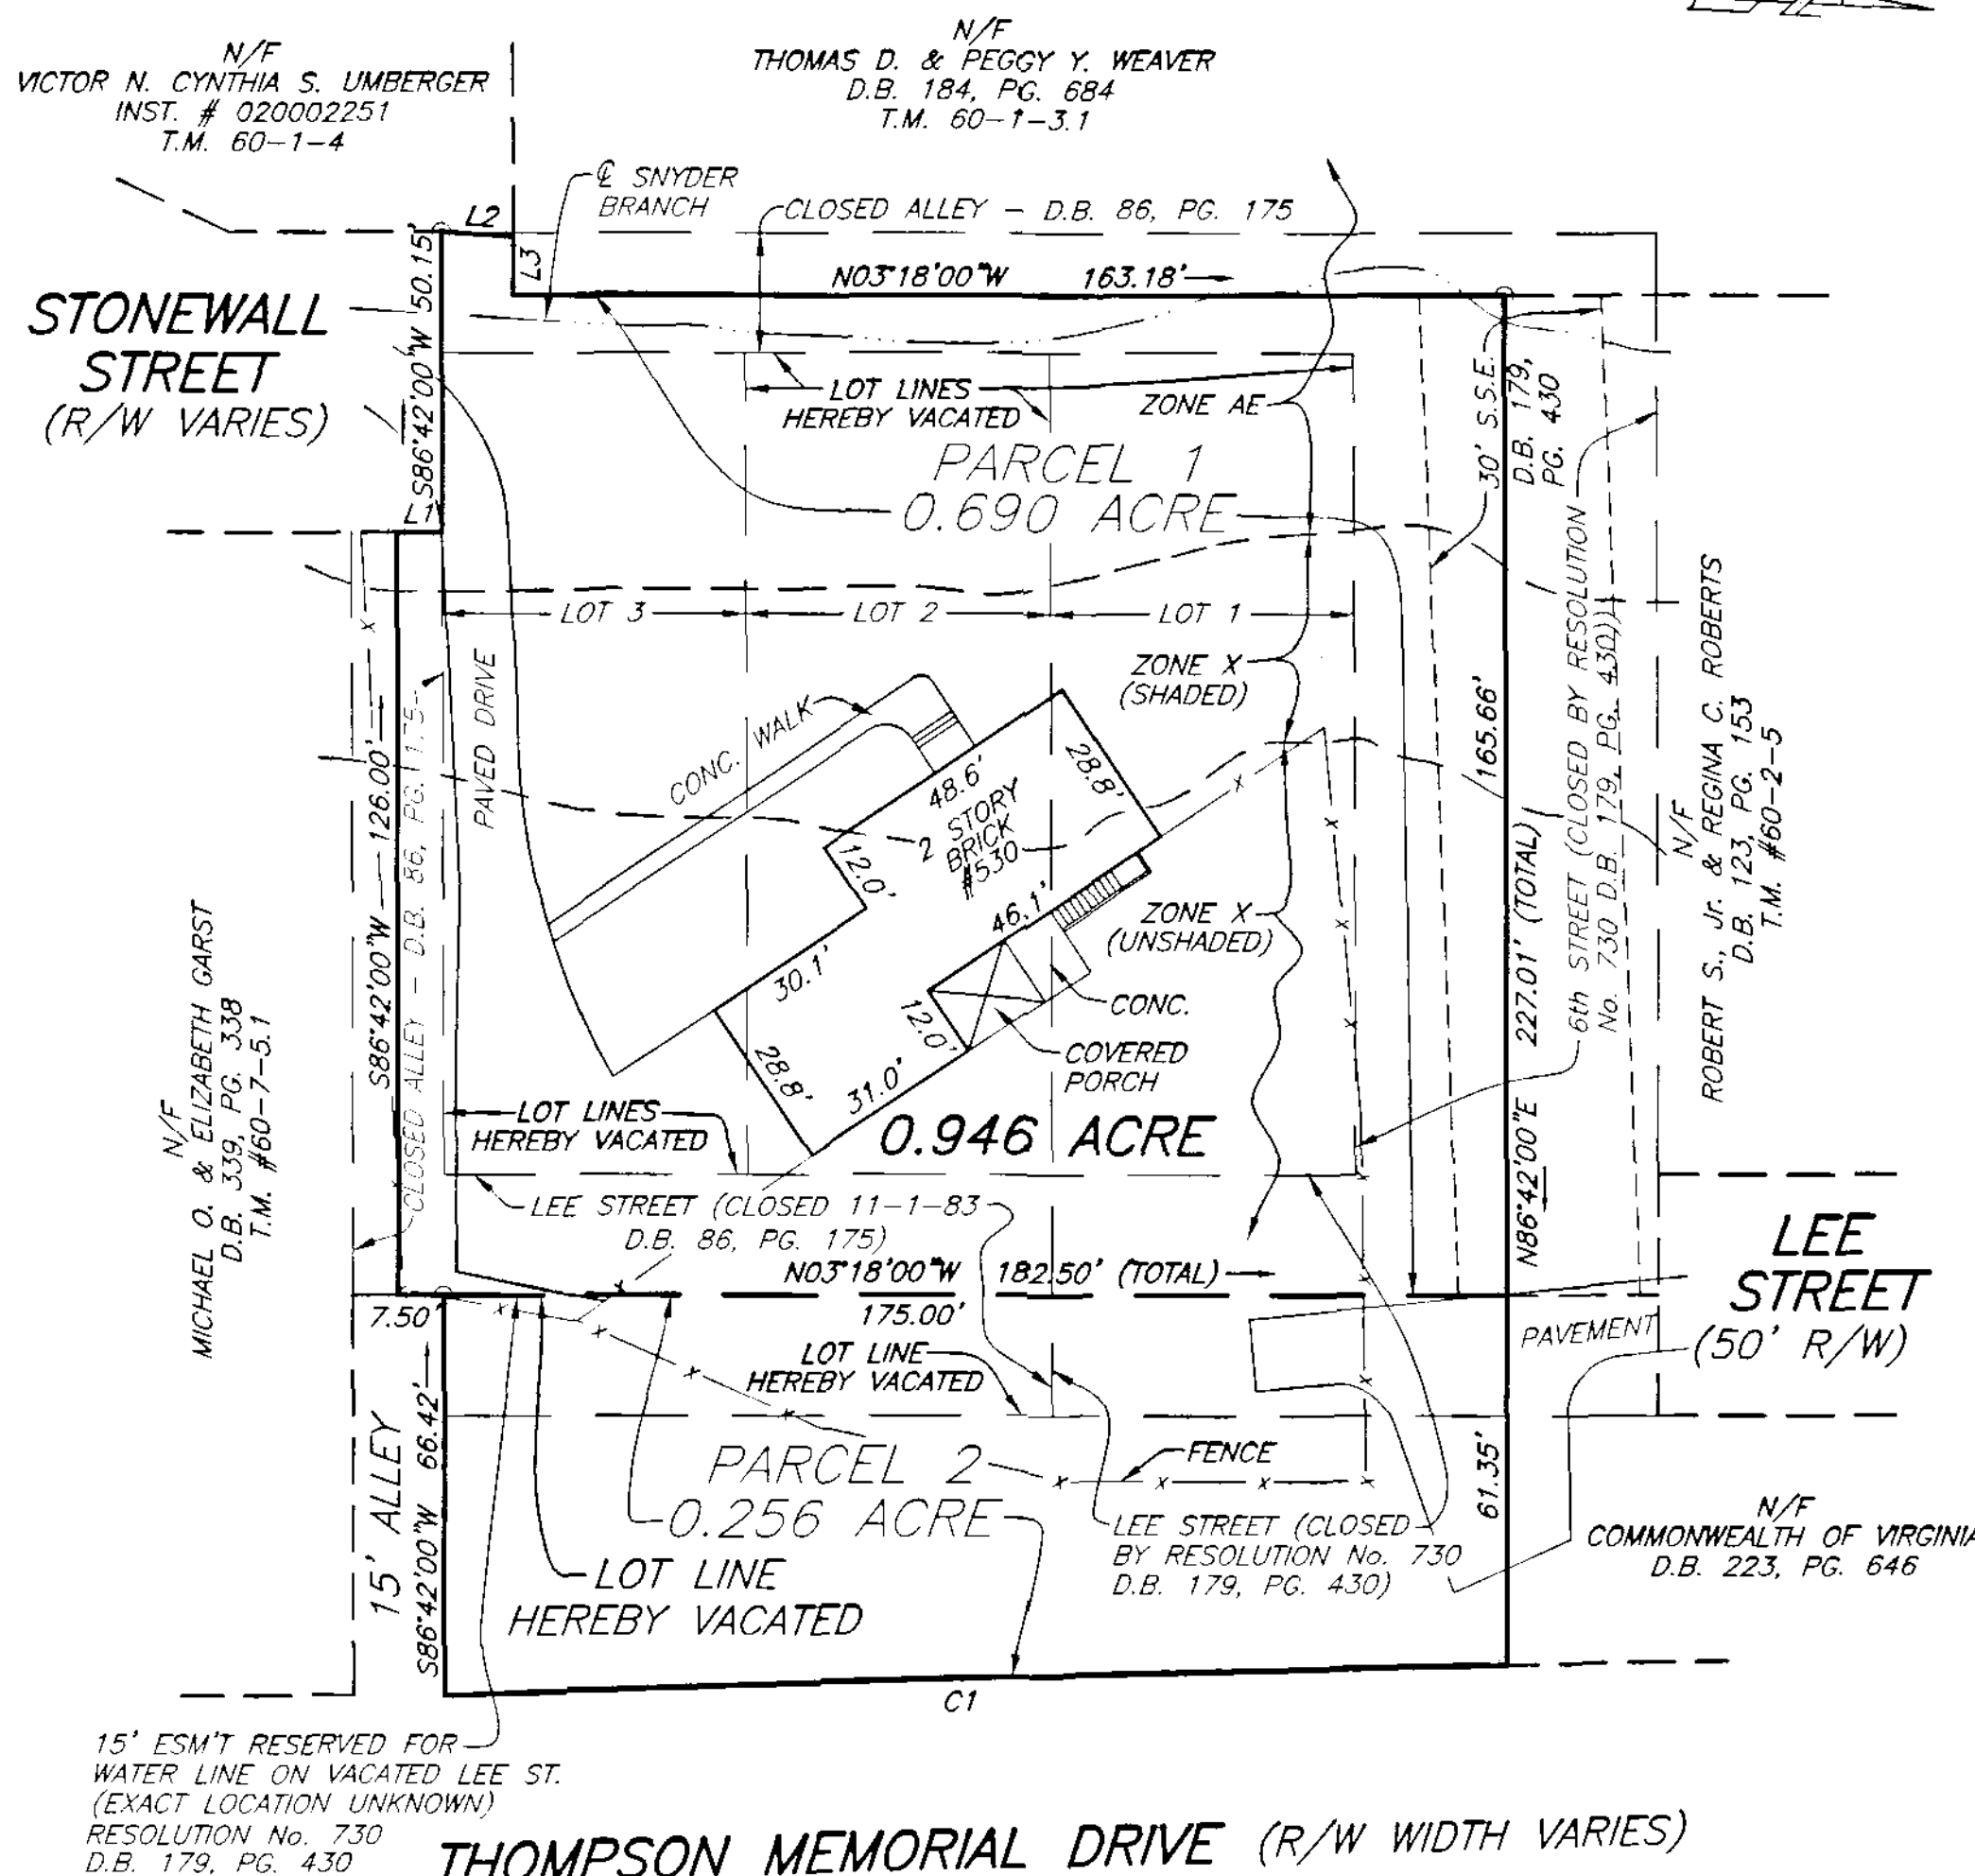 N/F
VICTOR N. CYNTHIA S. UMBERGER
INST. # 020002251
T.M. 60-1-4
N/F
THOMAS D. & PEGGY Y. WEAVER
D.B. 184, PG. 684
T.M. 60-1-3.1
℄ SNYDER
BRANCH
CLOSED ALLEY - D.B. 86, PG. 175
L2
L3
N03°18'00"W 163.18'
STONEWALL
STREET
(R/W VARIES)
S86°42'00"W 50.15'
L1
LOT LINES
HEREBY VACATED
ZONE AE
30' S.S.E.
D.B. 179,
PG. 430
PARCEL 1
0.690 ACRE
LOT 3
LOT 2
LOT 1
ZONE X
(SHADED)
PAVED DRIVE
CONC. WALK
48.6'
28.8'
2 STORY
BRICK
#530
12.0'
46.1'
30.1'
ZONE X
(UNSHADED)
CONC.
COVERED
PORCH
12.0'
28.8'
31.0'
S86°42'00"W 126.00'
CLOSED ALLEY - D.B. 86, PG. 175
165.66'
N86°42'00"E 227.01' (TOTAL)
6th STREET (CLOSED BY RESOLUTION
No. 730 D.B. 179, PG. 430))
N/F
ROBERT S., Jr. & REGINA C. ROBERTS
D.B. 123, PG. 153
T.M. #60-2-5
N/F
MICHAEL O. & ELIZABETH GARST
D.B. 339, PG. 338
T.M. #60-7-5.1
LOT LINES
HEREBY VACATED
0.946 ACRE
LEE STREET (CLOSED 11-1-83
D.B. 86, PG. 175)
N03°18'00"W 182.50' (TOTAL)
7.50'
175.00'
LEE
STREET
(50' R/W)
PAVEMENT
LOT LINE
HEREBY VACATED
15' ALLEY
S86°42'00"W 66.42'
PARCEL 2
0.256 ACRE
FENCE
61.35'
LEE STREET (CLOSED
BY RESOLUTION No. 730
D.B. 179, PG. 430)
N/F
COMMONWEALTH OF VIRGINIA
D.B. 223, PG. 646
LOT LINE
HEREBY VACATED
C1
15' ESM'T RESERVED FOR
WATER LINE ON VACATED LEE ST.
(EXACT LOCATION UNKNOWN)
RESOLUTION No. 730
D.B. 179, PG. 430
THOMPSON MEMORIAL DRIVE (R/W WIDTH VARIES)